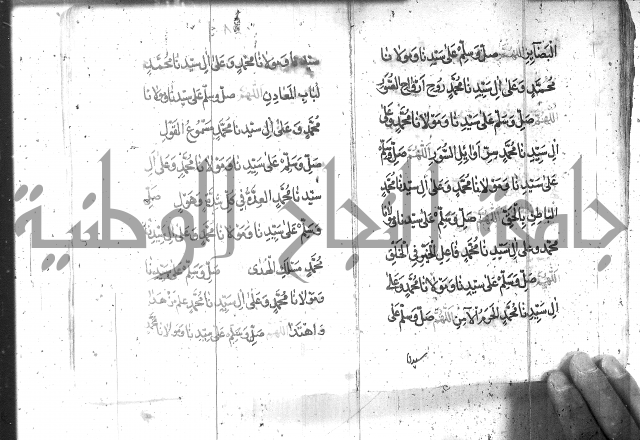 البصاير اللهم صل وسلم على سيدنا ومولانا
محمد وعلى ال سيدنا محمد روح ارواح الصور
اللهم صل وسلم على سيدنا ومولانا محمد وعلى
ال سيدنا محمد سر اوائل السور اللهم صل وسلم
على سيدنا ومولانا محمد وعلى ال سيدنا محمد
الناطق بالحق اللهم صل وسلم على سيدنا ومولانا
محمد وعلى ال سيدنا محمد فاعل الخير في الخلق
اللهم صل وسلم على سيدنا ومولانا محمد وعلى
ال سيدنا محمد الحرم الامن اللهم صل وسلم على
سيدنا
سيدنا ومولانا محمد وعلى ال سيدنا محمد
لباب المعادن اللهم صل وسلم على سيدنا ومولانا
محمد وعلى ال سيدنا محمد مسموع القول
صل وسلم على سيدنا ومولانا محمد وعلى ال
سيدنا محمد العدة في كل شدة وهول صل
وسلم على سيدنا ومولانا محمد وعلى ال سيدنا
محمد مسلك الهدى صل وسلم على سيدنا
ومولانا محمد وعلى ال سيدنا محمد علم من هدا
واهتدا اللهم صل وسلم على سيدنا ومولانا محمد
جامعة النجاح الوطنية